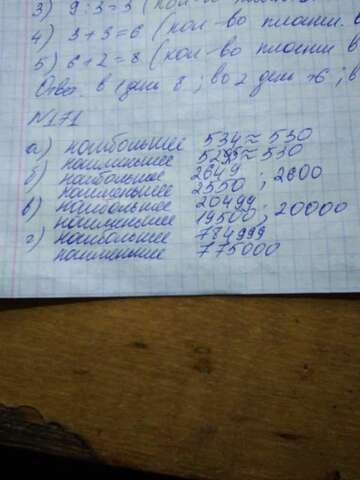 3) 9:3=3 (кол-во
4) 3+3=6 (кол-во плотни.
5) 6+2=8 (кол-во плотни в
Ответ: в 1 дни 8; во 2 дни 6; в
N171
а) наибольшее 534≈530
наименьшее 525≈530
б) наибольшее 2649
наименьшее 2550; 2600
в) наибольшее 20499
наименьшее 19500; 20000
г) наибольшее 784999
наименьшее 775000